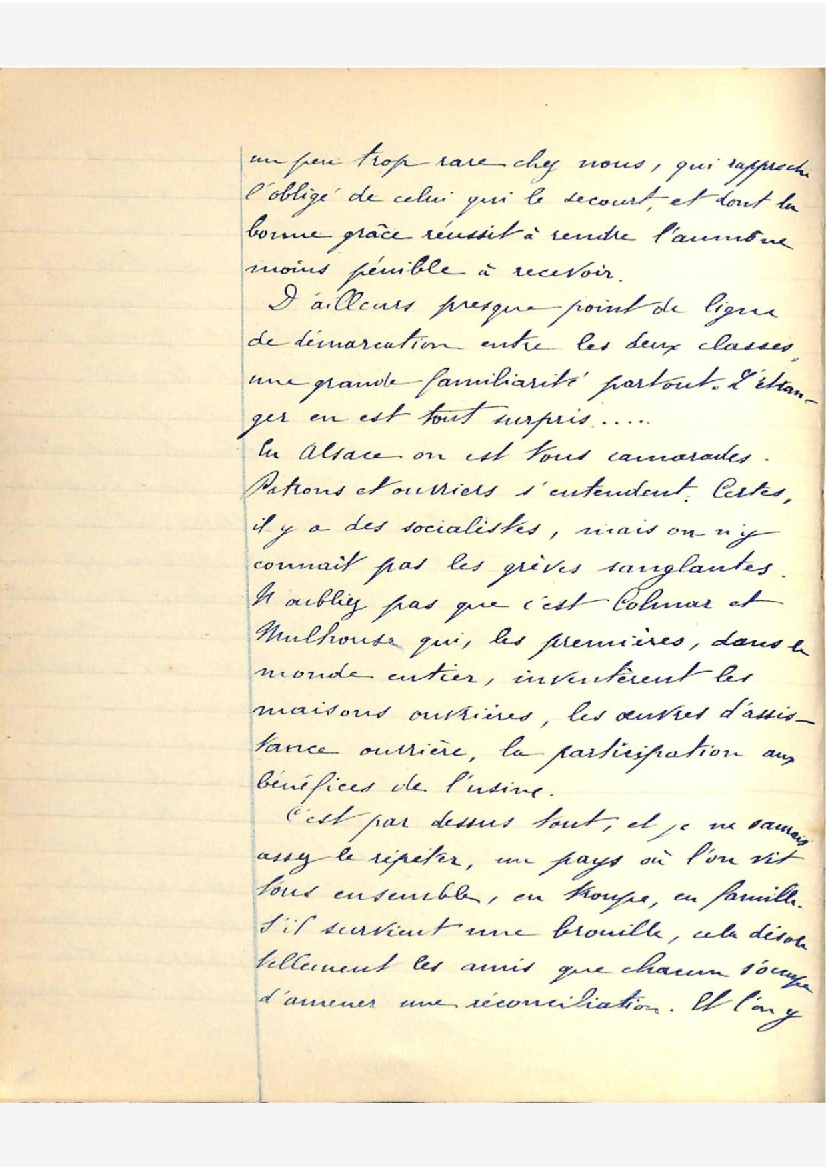 un peu trop rare chez nous, qui rapproche
l'obligé de celui qui le secourt, et dont la
bonne grâce réussit à rendre l'aumône
moins pénible à recevoir.
D'ailleurs presque point de ligne
de démarcation entre les deux classes,
une grande familiarité partout. L'étran-
ger en est tout surpris.....
En Alsace on est tous camarades.
Patrons et ouvriers s'entendent. Certes,
il y a des socialistes, mais on n'y
connait pas les grèves sanglantes.
N'oubliez pas que c'est Colmar et
Mulhouse qui, les premières, dans le
monde entier, inventèrent les
maisons ouvrières, les œuvres d'assis-
tance ouvrière, la participation aux
bénéfices de l'usine.
C'est par dessus tout, et je ne saurais
assez le répéter, un pays où l'on vit
tous ensemble, en troupe, en famille.
S'il survient une brouille, cela désole
tellement les amis que chacun s'occupe
d'amener une réconciliation. Et l'on y